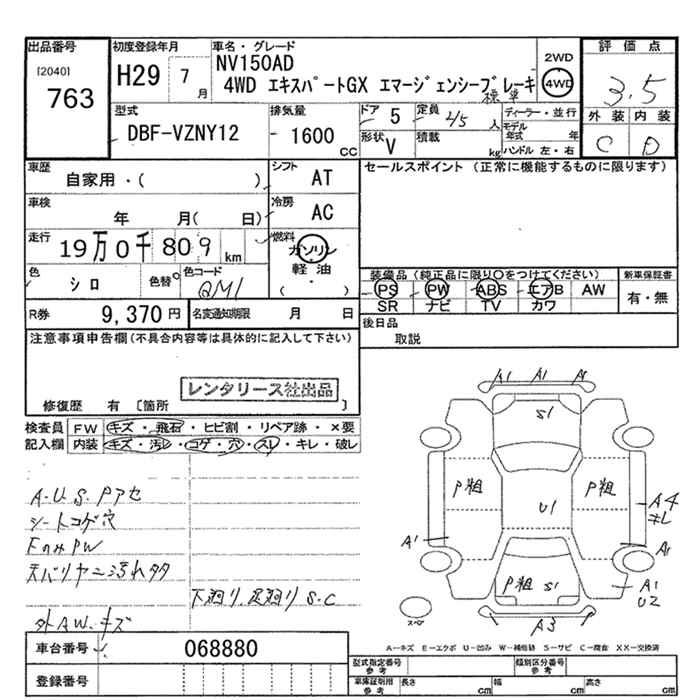 出品番号
[2040]
763
初度登録年月
H29 7月
車名・グレード
NV150AD
4WD エキスパートGX エマージェンシーブレーキ
標準
2WD
4WD
評価点
3.5
外装 内装
C D
型式
DBF-VZNY12
排気量
1600 cc
ドア 5
定員 2/5 人
形状 V
積載 kg
ディーラー・並行
モデル年式 年
ハンドル 左・右
車歴
自家用・( )
シフト AT
車検
年 月( 日)
冷房 AC
走行
19万0千809 km
燃料
ガソリン
軽油
( )
色
シロ
色替
色コード
QM1
R券 9,370円
名変通知期限 月 日
セールスポイント (正常に機能するものに限ります)
装備品 (純正品に限り〇をつけてください)
PS PW ABS エアB AW
SR ナビ TV カワ
新車保証書
有・無
後日品
取説
注意事項申告欄(不具合内容等は具体的に記入して下さい)
レンタリース社出品
修復歴 有 〔箇所 〕
検査員記入欄
FW キズ・飛石・ヒビ割・リペア跡・×要
内装 キズ・汚レ・コゲ・穴・スレ・キレ・破レ
A.U.S.Pアセ
シートコゲ穴
FのみPW
天バリヤニ汚れタタ
下廻り.足廻り S.C
外AW.キズ
A1 A1 A1
S1
P粗 P粗
U1
A4
キレ
A1 A1
P粗 S1
A1
U2
スペア
A3
A-キズ E-エクボ U-凹み W-補修跡 S-サビ C-腐食 XX-交換済
車台番号 068880
登録番号
型式指定番号 参考
類別区分番号 参考
車庫証明用 参考
長さ cm 幅 cm 高さ cm